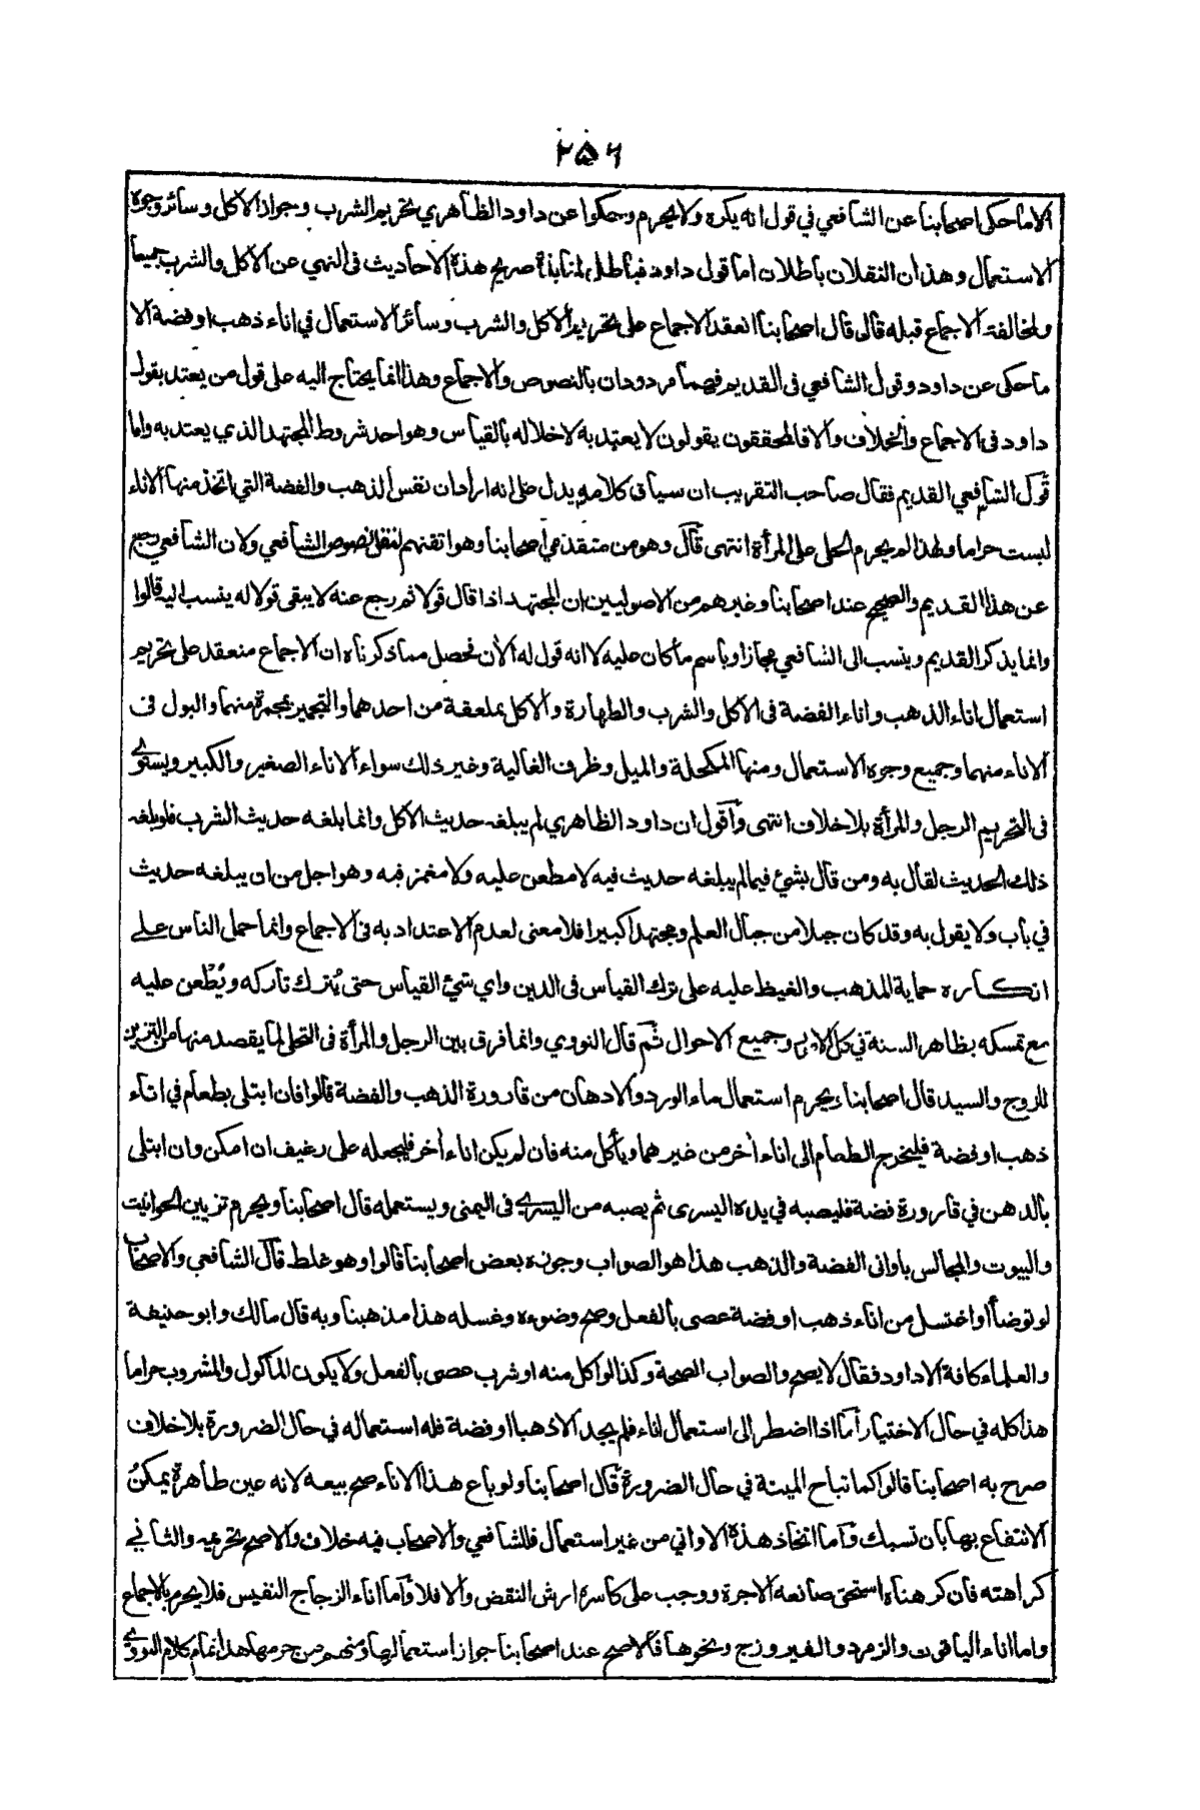 ٢٥٦
الا ما حكى اصحابنا عن الشافعي في قول انه يكره ولا يحرم وحكوا عن داود الظاهري تحريم الشرب وجواز الاكل وسائر وجوه
الاستعمال وهذان النقلان باطلان اما قول داود فباطل لمنابذة صريح هذه الاحاديث فى النهي عن الاكل والشرب جميعا
ولمخالفة الاجماع قبله قال قال اصحابنا انعقد الاجماع على تحريم الاكل والشرب وسائر الاستعمال في اناء ذهب او فضة الا
ما حكى عن داود وقول الشافعي فى القديم فهما مردودان بالنصوص والاجماع وهذا انما يحتاج اليه على قول من يعتد بقول
داود فى الاجماع والخلاف والا فالمحققون يقولون لا يعتد به لاخلاله بالقياس وهو احد شروط المجتهد الذي يعتد به واما
قول الشافعي القديم فقال صاحب التقريب ان سياق كلامه يدل على انه اراد ان نفس الذهب والفضة التي اتخذ منها الاناء
ليست حراما ولهذا لم يحرم الحلى على المرأة انتهى قال وهو من متقدمي اصحابنا وهو اتقنهم لنقل نصوص الشافعي ولان الشافعي رجع
عن هذا القديم والصحيح عند اصحابنا وغيرهم من الاصوليين ان المجتهد اذا قال قولا ثم رجع عنه لا يبقى قولا له ينسب اليه قالوا
وانما يذكر القديم وينسب الى الشافعي مجازا وباسم ما كان عليه لا انه قول له الآن فحصل مما ذكرناه ان الاجماع منعقد على تحريم
استعمال اناء الذهب واناء الفضة فى الاكل والشرب والطهارة والاكل بملعقة من احدهما والتجمير بمجمرة منهما والبول فى
الاناء منهما وجميع وجوه الاستعمال ومنها المكحلة والميل وظرف الغالية وغير ذلك سواء الاناء الصغير والكبير ويستوي
فى التحريم الرجل والمرأة بلا خلاف انتهى وأقول ان داود الظاهري لم يبلغه حديث الاكل وانما بلغه حديث الشرب فلو بلغه
ذلك الحديث لقال به ومن قال بشيء فيما لم يبلغه حديث فيه لا مطعن عليه ولا مغمز فيه وهو اجل من ان يبلغه حديث
في باب ولا يقول به وقد كان جبلا من جبال العلم ومجتهدا كبيرا فلا معنى لعدم الاعتداد به فى الاجماع وانما حمل الناس على
انكاره حماية المذهب والغيظ عليه على ترك القياس فى الدين واي شيء القياس حتى يُترك تاركه ويُطعن عليه
مع تمسكه بظاهر السنة في كل الابواب وجميع الاحوال ثم قال النووي وانما فرق بين الرجل والمرأة فى التحلى لما يقصد منها من التزين
للزوج والسيد قال اصحابنا ويحرم استعمال ماء الورد والادهان من قارورة الذهب والفضة قالوا فان ابتلى بطعام في اناء
ذهب او فضة فليخرج الطعام الى اناء آخر من غيرهما ويأكل منه فان لم يكن اناء آخر فليجعله على رغيف ان امكن وان ابتلى
بالدهن في قارورة فضة فليصبه في يده اليسرى ثم يصبه من اليسرى فى اليمنى ويستعمله قال اصحابنا ويحرم تزيين الحوانيت
والبيوت والمجالس باوانى الفضة والذهب هذا هو الصواب وجوزه بعض اصحابنا قالوا وهو غلط قال الشافعي والاصحاب
لو توضأ او اغتسل من اناء ذهب او فضة عصى بالفعل وصح وضوءه وغسله هذا مذهبنا وبه قال مالك وابو حنيفة
والعلماء كافة الا داود فقال لا يصح والصواب الصحة وكذا لو اكل منه او شرب عصى بالفعل ولا يكون المأكول والمشروب حراما
هذا كله في حال الاختيار أما اذا اضطر الى استعمال اناء فلم يجد الا ذهبا او فضة فله استعماله في حال الضرورة بلا خلاف
صرح به اصحابنا قالوا كما تباح الميتة في حال الضرورة قال اصحابنا ولو باع هذا الاناء صح بيعه لانه عين طاهرة يمكن
الانتفاع بها بان تسبك وأما اتخاذ هذه الاواني من غير استعمال فللشافعي والاصحاب فيه خلاف والاصح تحريمه والثاني
كراهته فان كرهناه استحق صانعه الاجرة ووجب على كاسره ارش النقض والا فلا وأما اناء الزجاج النفيس فلا يحرم بالاجماع
واما اناء الياقوت والزمرد والفيروزج ونحوها فالاصح عند اصحابنا جواز استعمالها ومنهم من حرمها هذا تمام كلام النووي